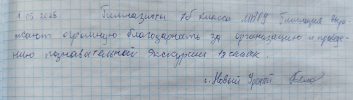 Гимназисты 7б класса МАОУ Гимназия выра
жают огромную благодарность за организацию и проведе-
нию познавательной экскурсии в
г. Новый Уренгой